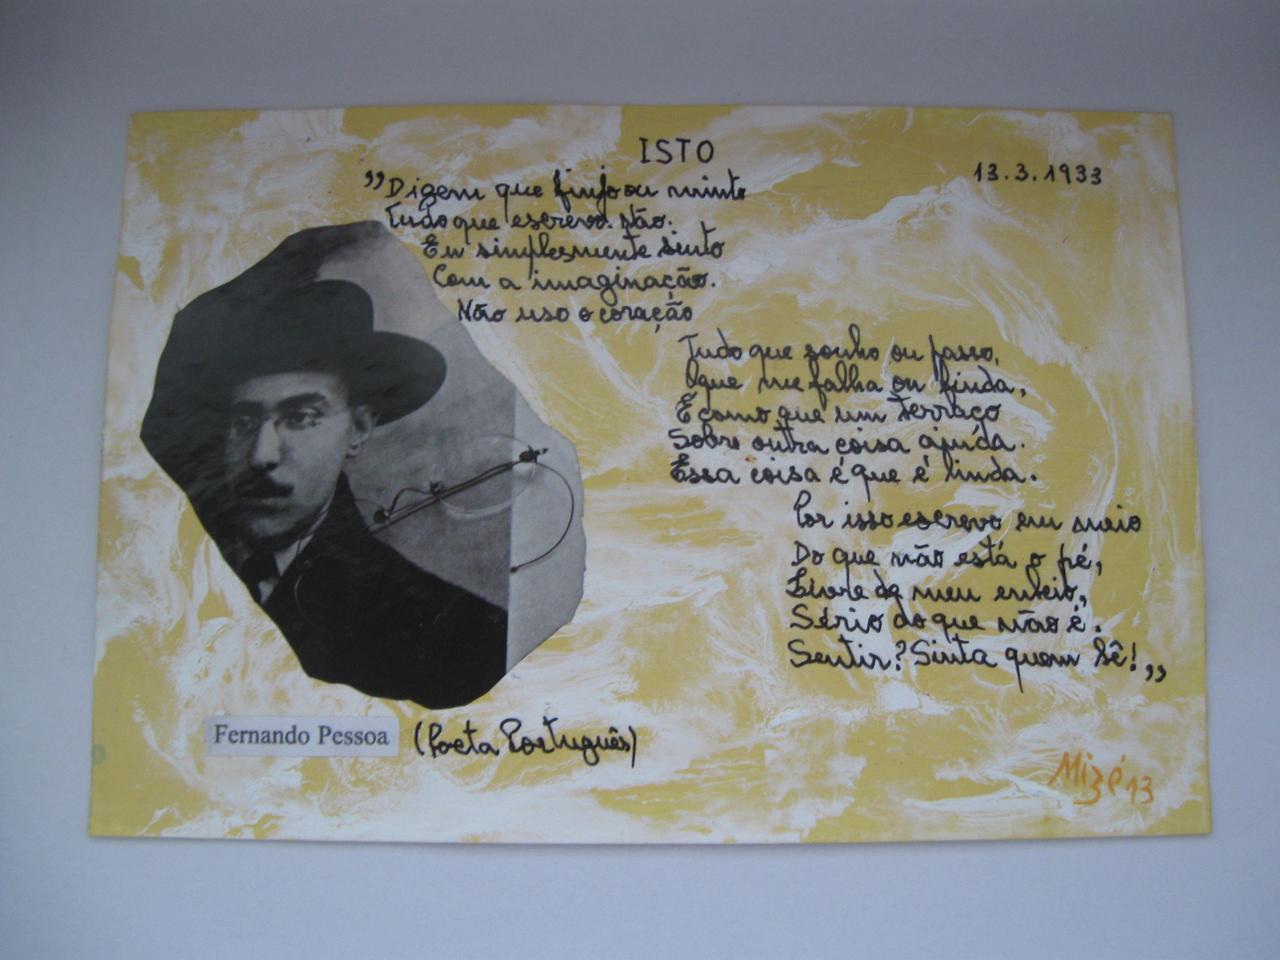 ISTO
13.3.1933
"Dizem que finjo ou minto
Tudo que escrevo. Não.
Eu simplesmente sinto
Com a imaginação.
Não uso o coração
Tudo que sonho ou passo,
O que me falha ou finda,
É como que um terraço
Sobre outra coisa ainda.
Essa coisa é que é linda.
Por isso escrevo em meio
Do que não está o pé,
Livre do meu enleio,
Sério do que não é.
Sentir? Sinta quem lê!"
Fernando Pessoa (Poeta Português)
Mizé 13